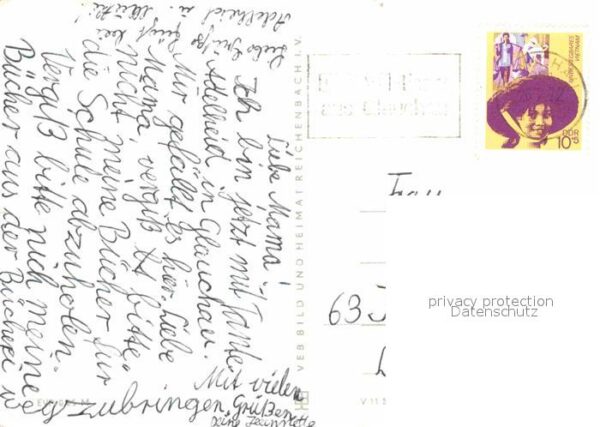 Liebe Mama!
Ich bin jetzt mit Tante
Adelheid in Glauchau.
Mir gefällt es hier. Liebe
Mama vergiß bitte
nicht meine Bücher für
die Schule abzuholen.
Vergiß bitte nich meine
Bücher aus der Bücherei weg
zubringen.
Mit vielen
Grüßen
Liebe Grüße
Adelheid u.
VEB BILD UND HEIMAT REICHENBACH i. V.
aus Glauchau
UNBESIEGBARES
VIETNAM
DDR
10+5
Frau
63
privacy protection
Datenschutz
V 11